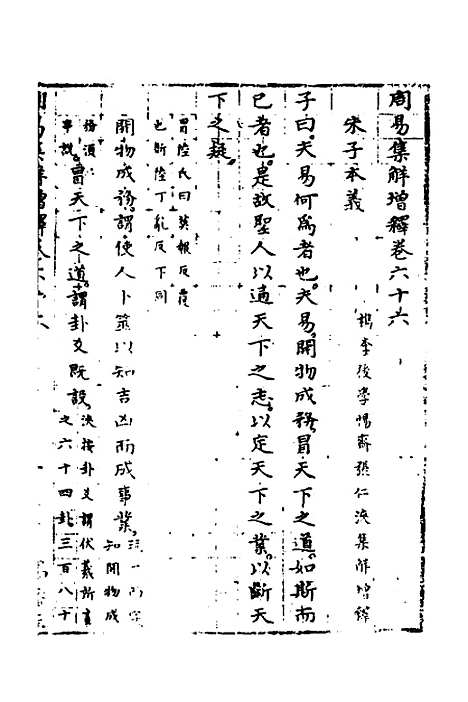 周易集解增釋卷六十六
朱子本義
檇李後學惕齋張仁浹集解增釋
子曰夫易何爲者也夫易開物成務冒天下之道如斯而
已者也是故聖人以通天下之志以定天下之業以斷天
下之疑
冒陸氏曰莫報反覆
也斷陸丁亂反下同
開物成務謂使人卜筮以知吉凶而成事業
知開物成
務須
事說
冒天下之道謂卦爻既設
浹按卦爻謂伏羲所畫
之六十四卦三百八十